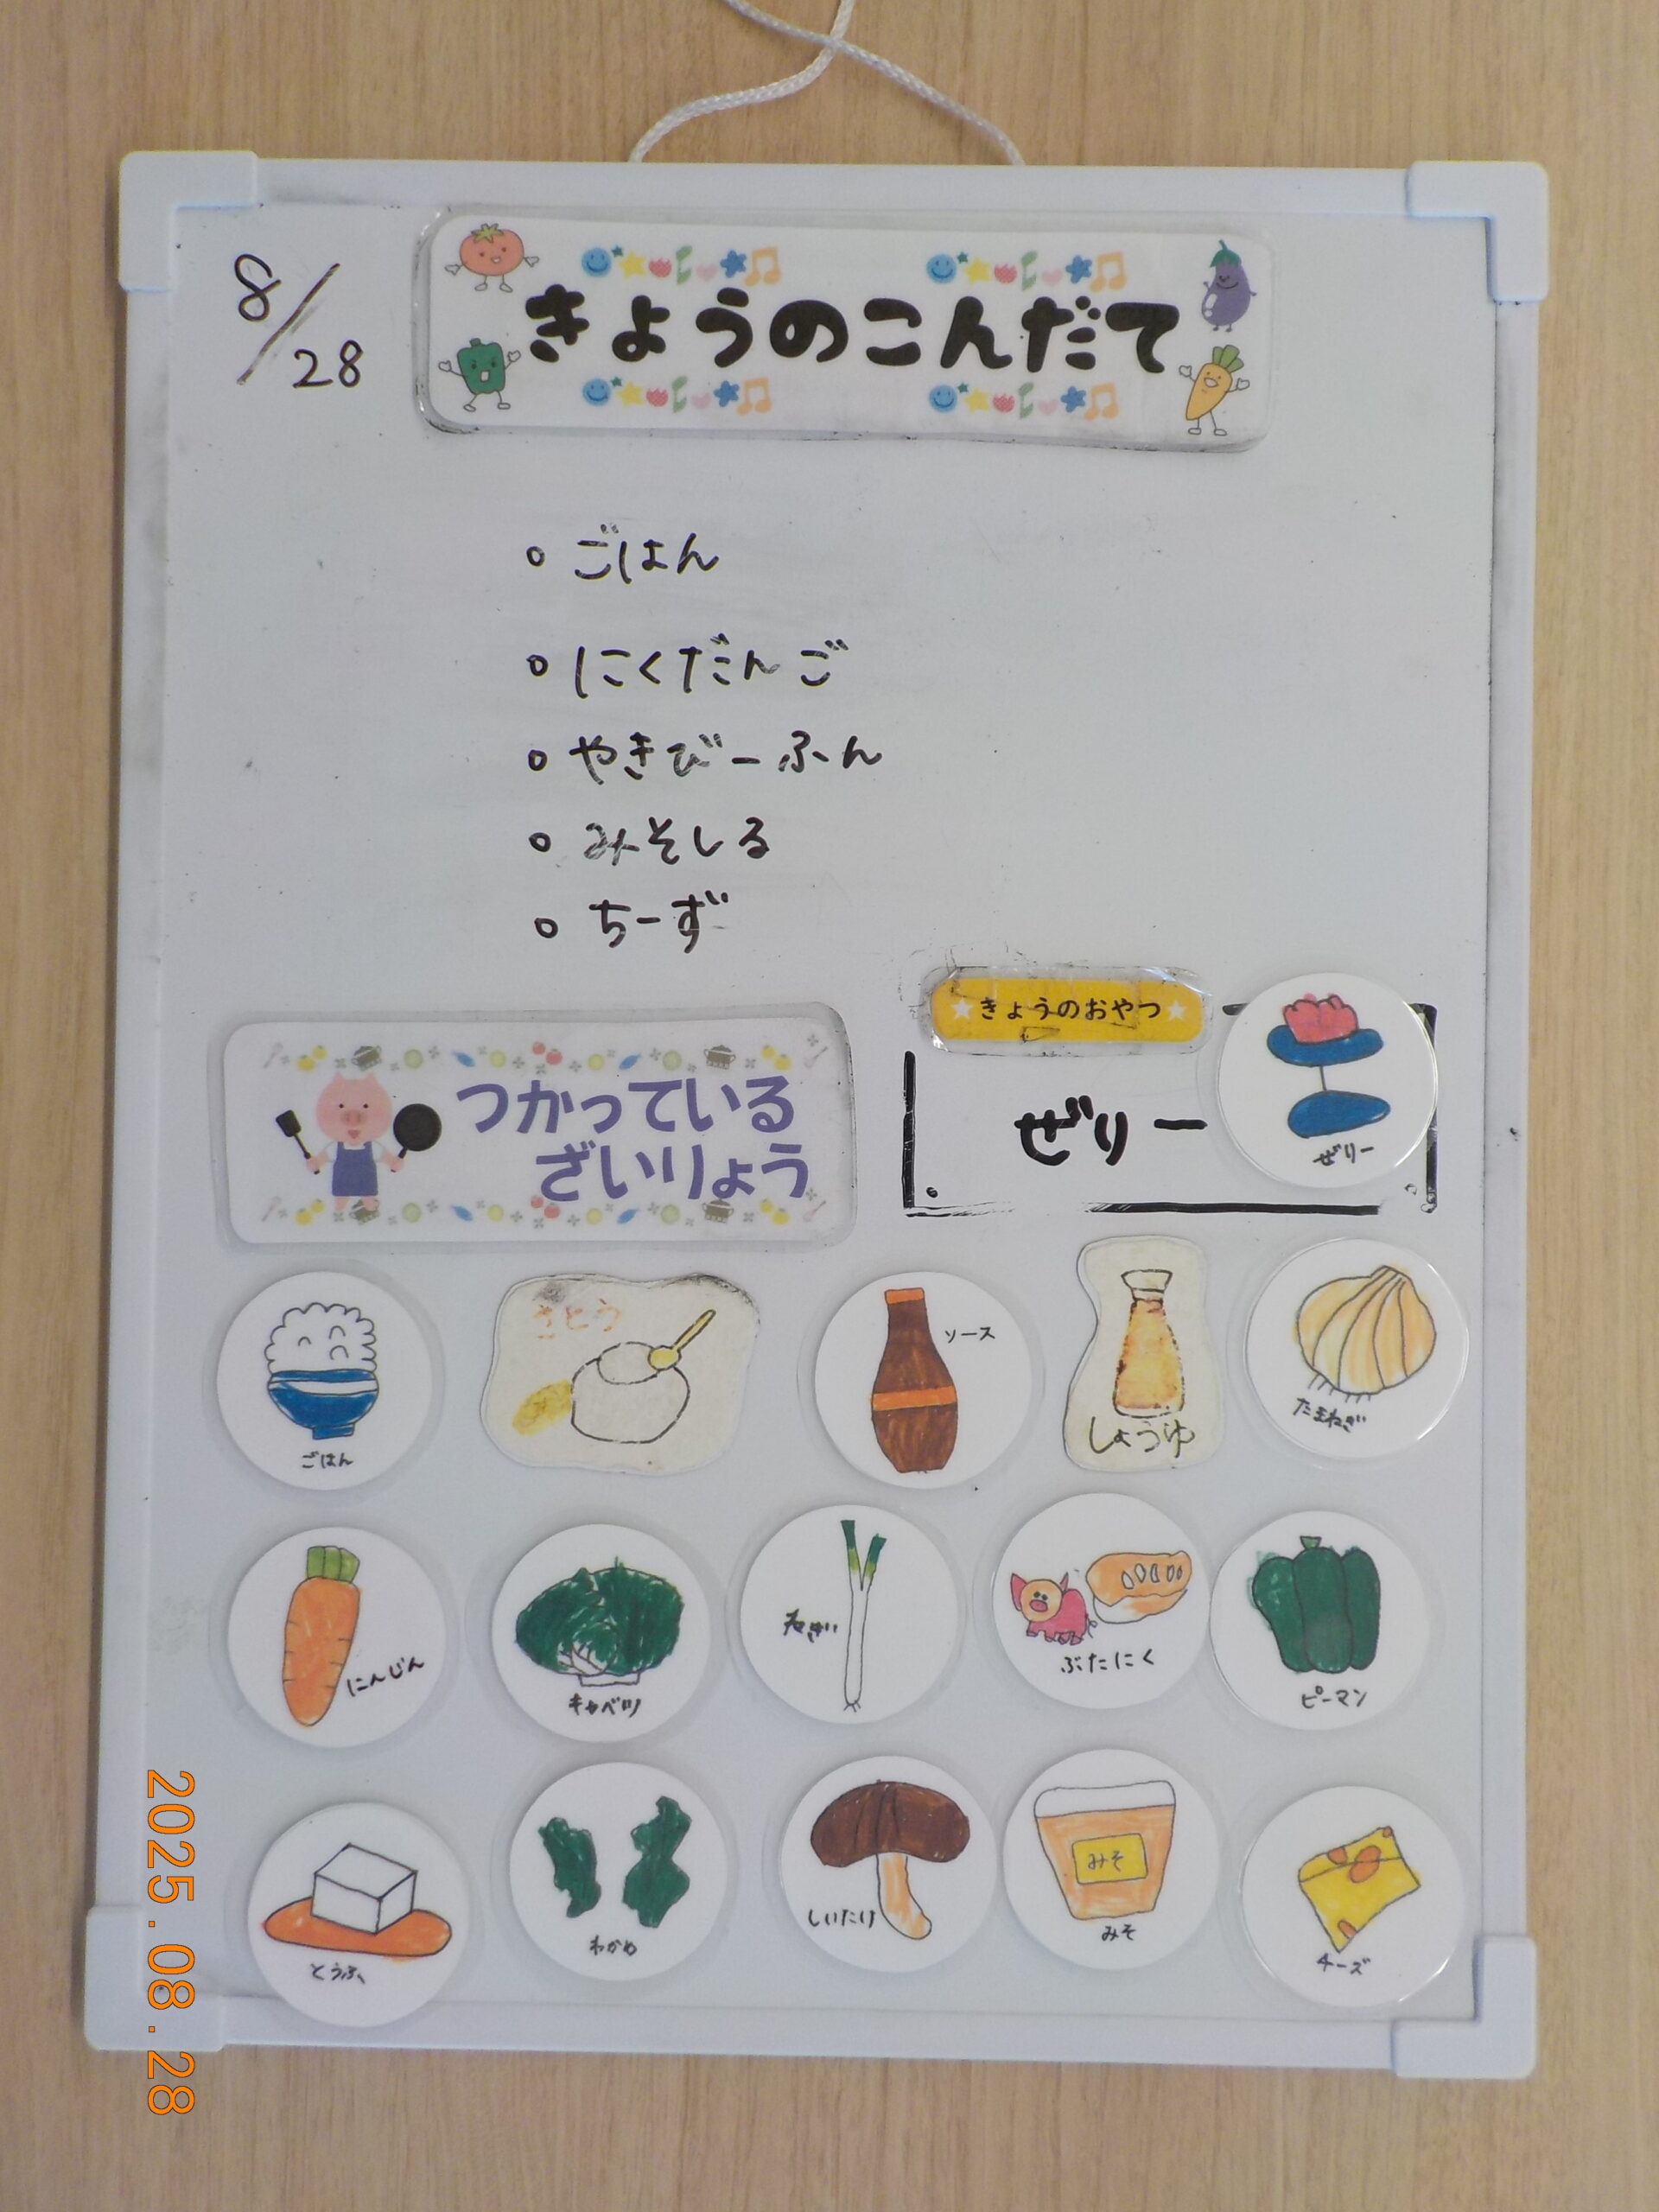 8/28
きょうのこんだて
○ ごはん
○ にくだんご
○ やきびーふん
○ みそしる
○ ちーず
★きょうのおやつ★
ぜりー
ぜりー
つかっている
ざいりょう
ごはん
さとう
ソース
しょうゆ
たまねぎ
にんじん
キャベツ
ねぎ
ぶたにく
ピーマン
とうふ
わかめ
しいたけ
みそ
みそ
チーズ
2025.08.28